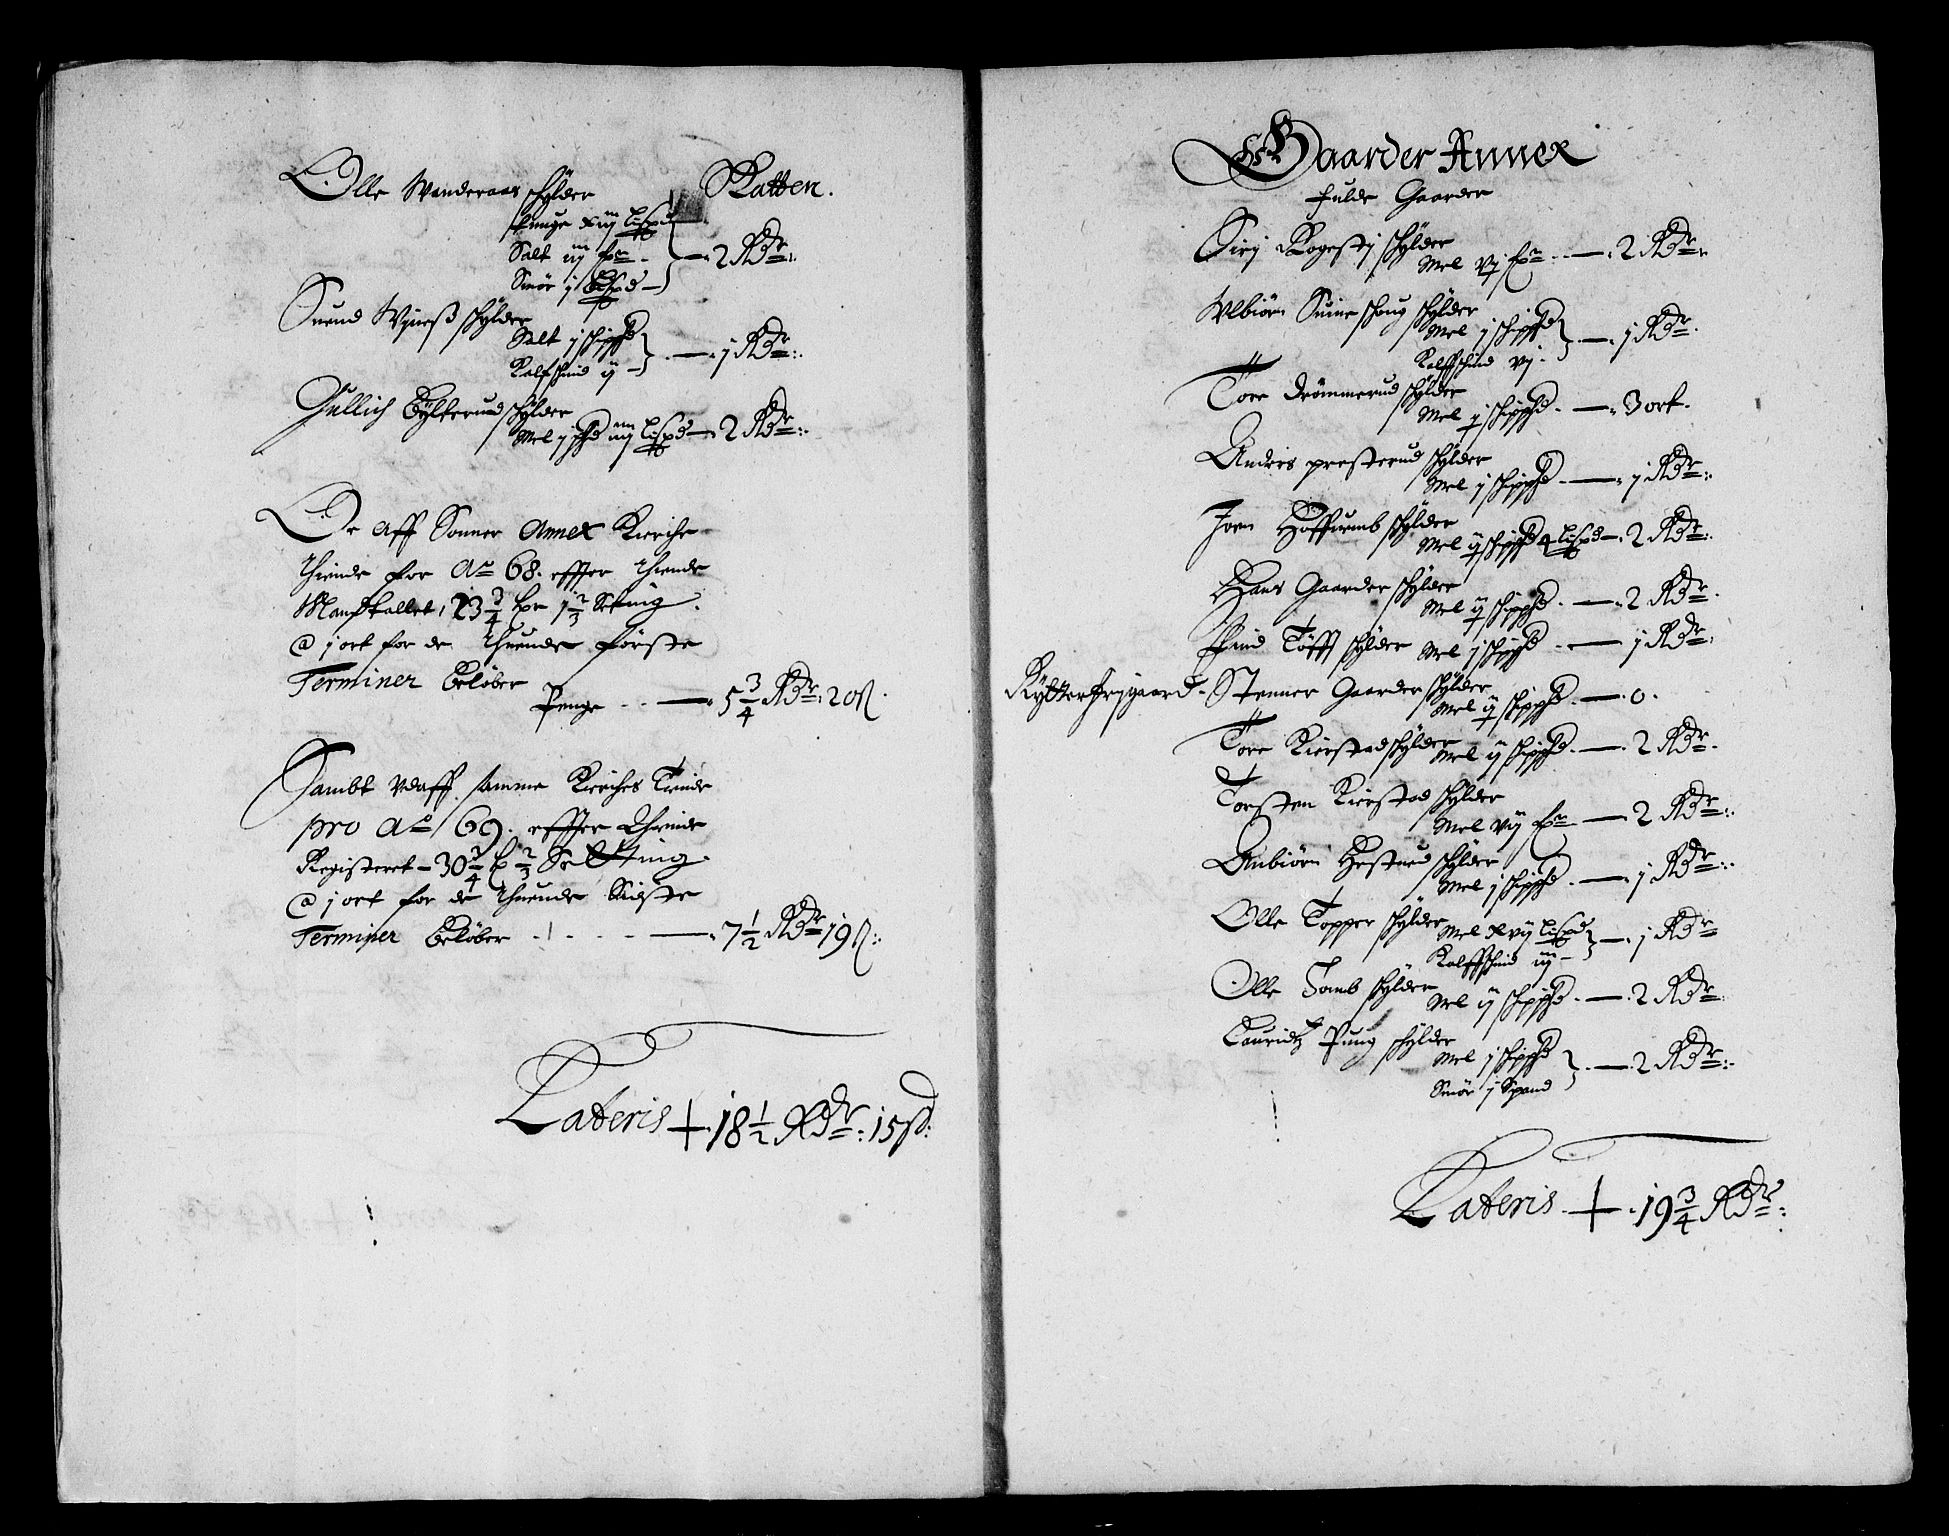 Olle Wanderaas schylder Skatten.
tunge xiij lispd
Salt iij fr
Smör j Lispd — 2 Rdr:
Suend Wijness schylder
Salt j schippd
Kalfschind ij — j Rdr:
Gullich Bylterud schylder
Mel j schpd iiij Lispd — 2 Rdr:
De aff Sonner Annex Kierche
thiende for Ao 68. effter thiende
Mandtallet, 23 3/4 tr 1 2/3 Setting.
@ j ort for de thuende förste
Terminer Beløber
Penge — 5 3/4 Rdr: 20 ß.
Sambt vdaff samme Kierches Teinde
pro Ao 69. effter Thiende
Registeret — 30 3/4 t 2/3 Setting.
@ j ort for de thuende Sidste
Terminer Beløber — 7 1/2 Rdr 19 ß:
Lateris + 18 1/2 Rdr: 15 ß:
Gaarder Annex
Fulde Gaarder
Sirj Rogestj schylder
Mel vj fr — 2 Rdr:
Vlbiörn Suineschoug schylder
Mel j schippd
Kalfschind vj — j Rdr.
Tore Drömmerud schylder
Mel j schippd. — 3 ort.
Anders presterud schylder
Mel j schippd — j Rdr:
Joen Hoffuumb schylder
Mel ij schippd 4 Lispd — 2 Rdr:
Hans Gaarder schylder
Mel ij schippd. — 2 Rdr.
Tofft schylder Mel j schippd — j Rdr:
Rytter frijgaard. Stenner Gaarder schylder
Mel ij schippd — 0.
Tore Kierstad schylder
Mel ij schippd. — 2 Rdr.
Torsten Kierstad schylder
Mel vij fr — 2 Rdr:
Anbiörn Hestned schylder
Mel j schippd — j Rdr:
Olle Topper schylder
Mel xvij Lispd
Kalfschind iij — j Rdr
Olle Tomb schylder
Mel ij schippd. — 2 Rdr:
Lauridtz Pung schylder
Mel j schippd
Smör j Spand — 2 Rdr:
Lateris + 19 3/4 Rdr: